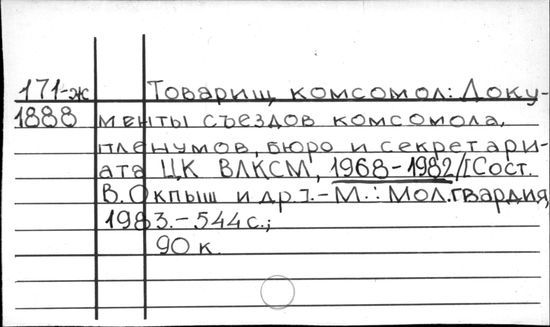 171-ж Товарищ комсомол: Доку-
1888 менты съездов комсомола,
пленумов, бюро и секретари-
ата ЦК ВЛКСМ, 1968-1982/[Сост.
В. Окпыш и др.].-М.: Мол.гвардия,
1983.-544 с.;
90 к.